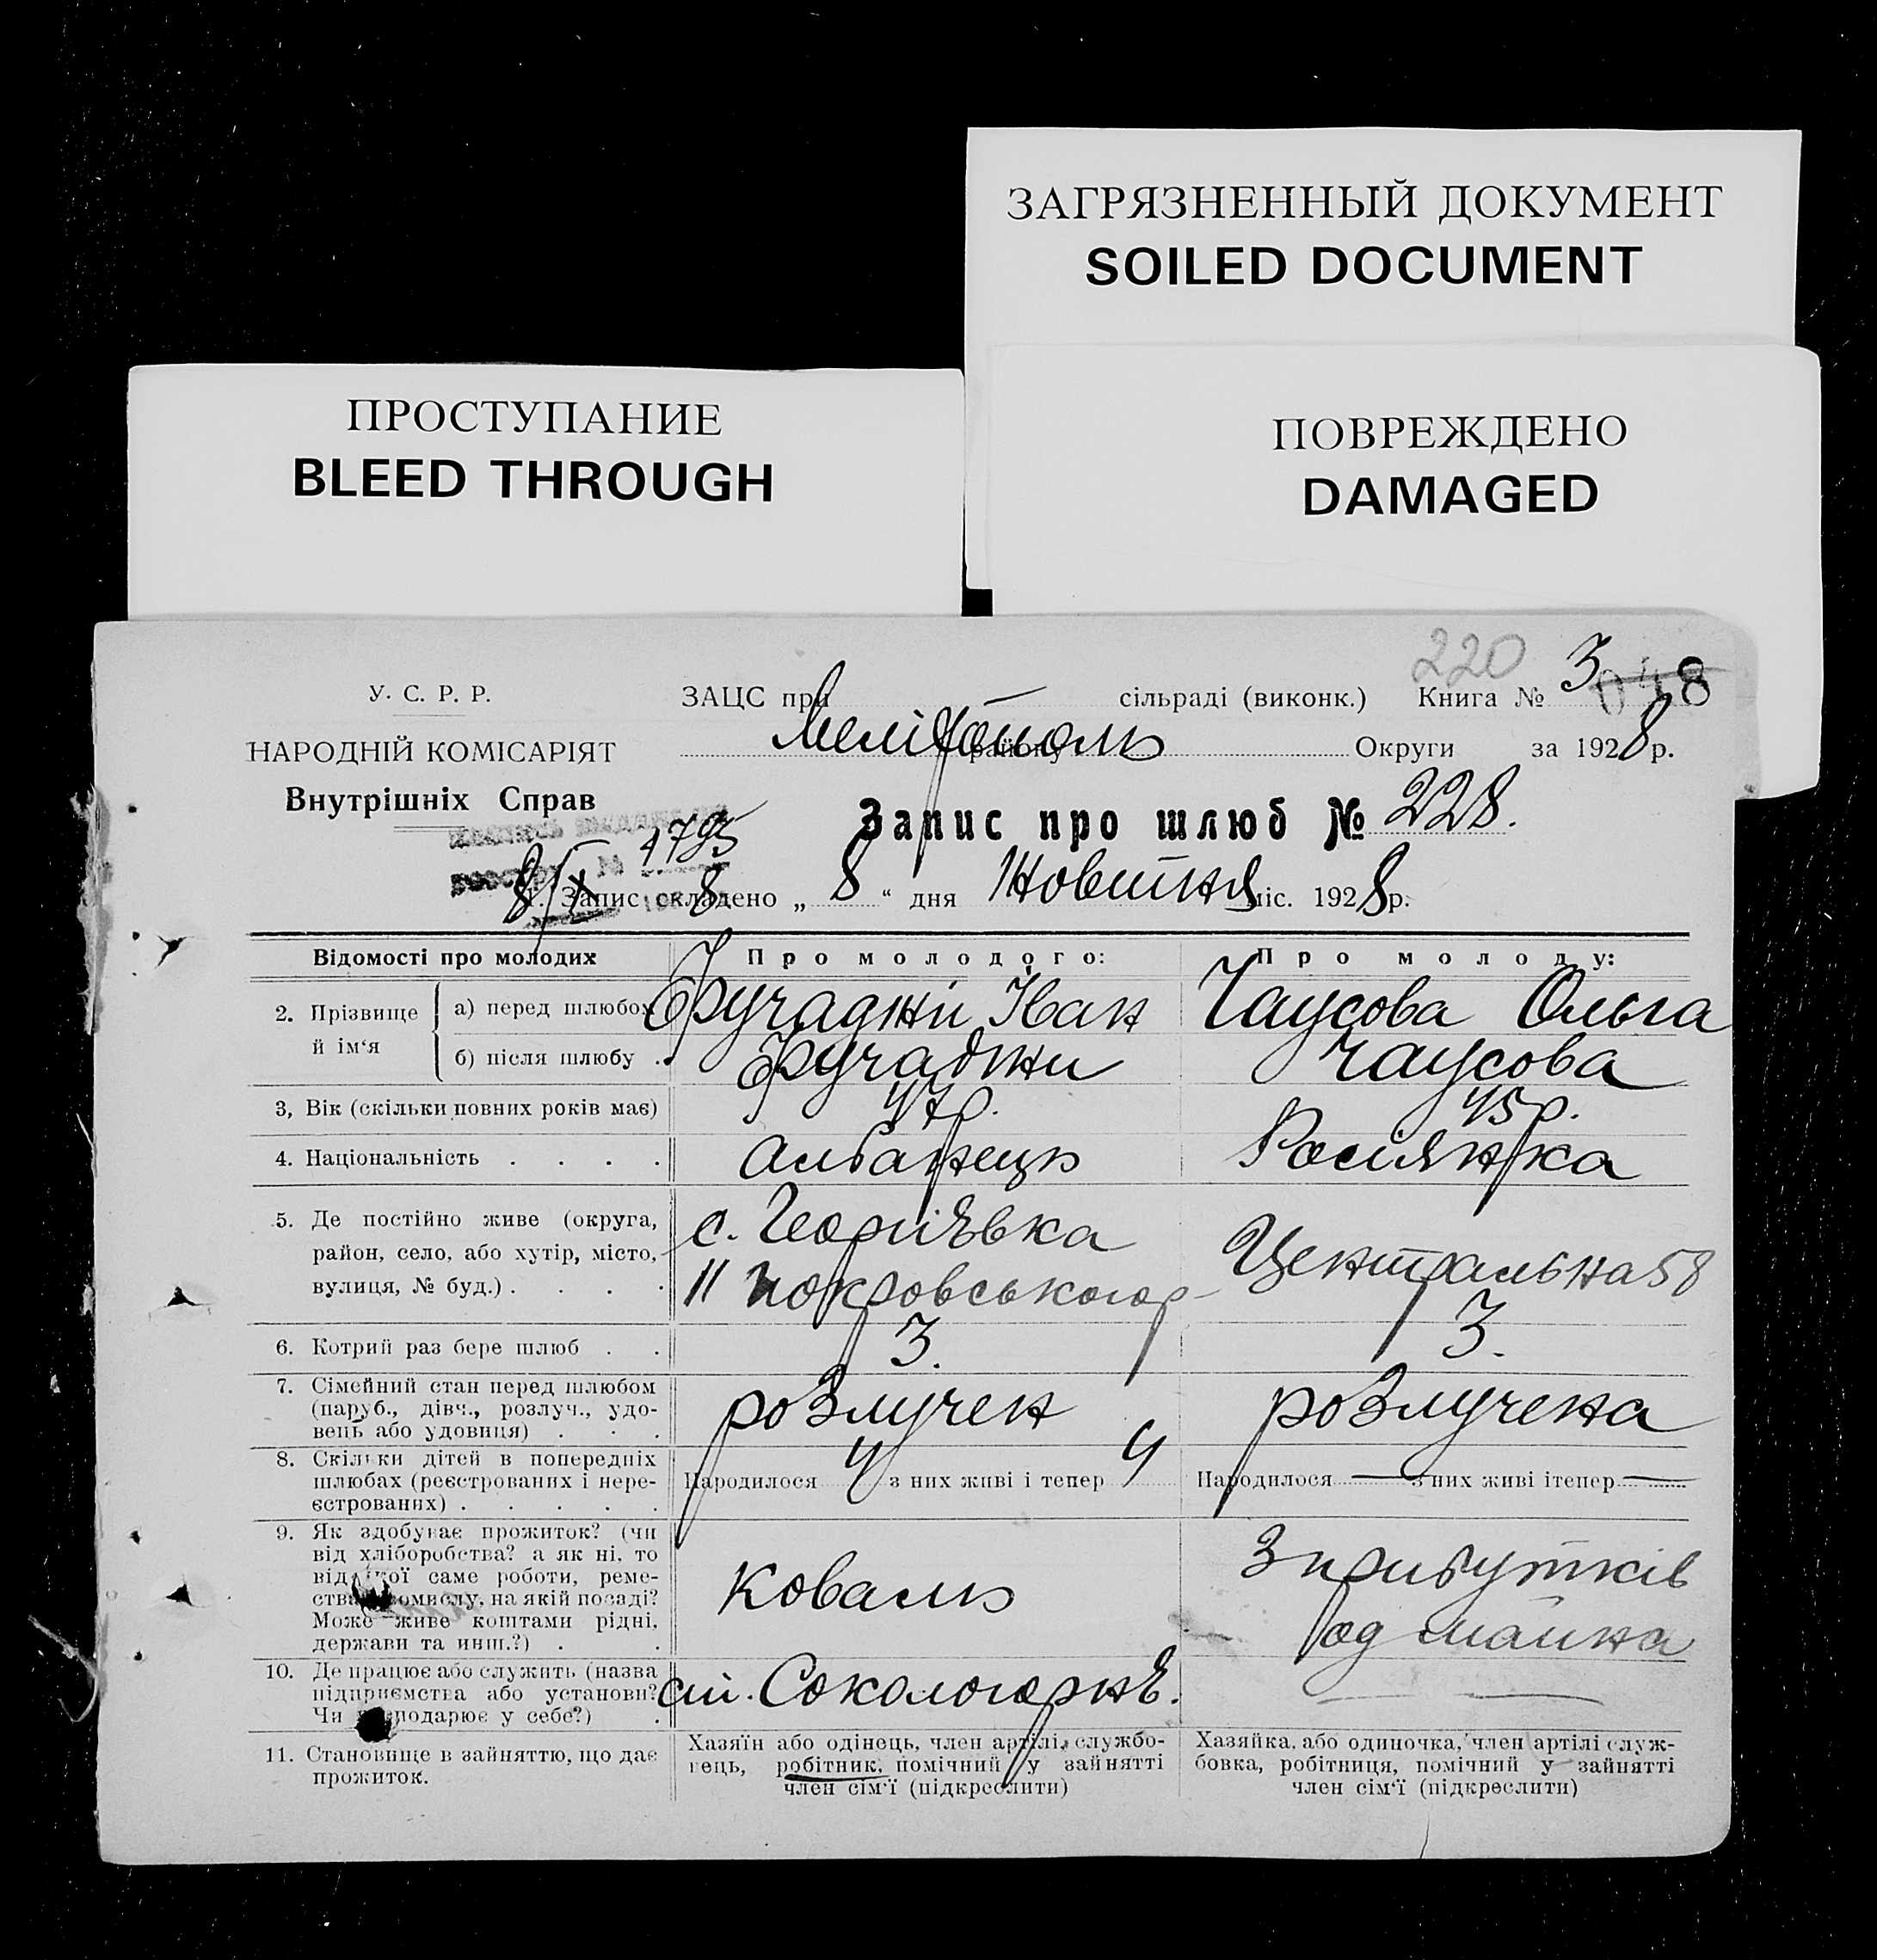 ЗАГРЯЗНЕННЫЙ ДОКУМЕНТ
SOILED DOCUMENT
ПРОСТУПАНИЕ
BLEED THROUGH
ПОВРЕЖДЕНО
DAMAGED
220
У. С. Р. Р.
ЗАЦС при — сільраді (виконк.) Книга № 3 048
НАРОДНІЙ КОМІСАРІЯТ
Мелітополь району Округи за 1928 р.
Внутрішніх Справ
Запис про шлюб № 228.
1795
8/X 8
1. Запис складено „ 8 “ дня Жовтня міс. 1928 р.
Відомості про молодих
Про молодого:
Про молоду:
2. Прізвище й ім‘я
а) перед шлюбом
Фучаджи Іван
Чаусова Ольга
б) після шлюбу .
Фучаджи
Чаусова
3, Вік (скільки повних років має)
47 р.
45 р.
4. Національність . . . .
албанець
Росіянка
5. Де постійно живе (округа,
район, село, або хутір, місто,
вулиця, № буд.) . . . .
с. Георгіївка
II Покровського р-
Центральна 58
6. Котрий раз бере шлюб . .
3.
3.
7. Сімейний стан перед шлюбом
(паруб., дівч., розлуч., удо-
вець або удовиця) . . .
розлучен
розлучена
8. Скільки дітей в попередніх
шлюбах (реєстрованих і нере-
єстрованих) . . . . .
Народилося 4 з них живі і тепер 4
Народилося — з них живі ітепер —
9. Як здобуває прожиток? (чи
від хліборобства? а як ні, то
від якої саме роботи, реме-
ства, промислу, на якій посаді?
Може живе коштами рідні,
держави та инш.?) . .
Коваль
З прибутків
од майна
10. Де працює або служить (назва
підприємства або установи?
Чи господарює у себе?) .
ст. Сокологорнѣ.
—
11. Становище в зайняттю, що дає
прожиток.
Хазяїн або одінець, член артілі, службо-
вець, робітник, помічний у зайнятті
член сім‘ї (підкреслити)
Хазяйка, або одиночка, член артілі служ-
бовка, робітниця, помічний у зайнятті
член сім‘ї (підкреслити)